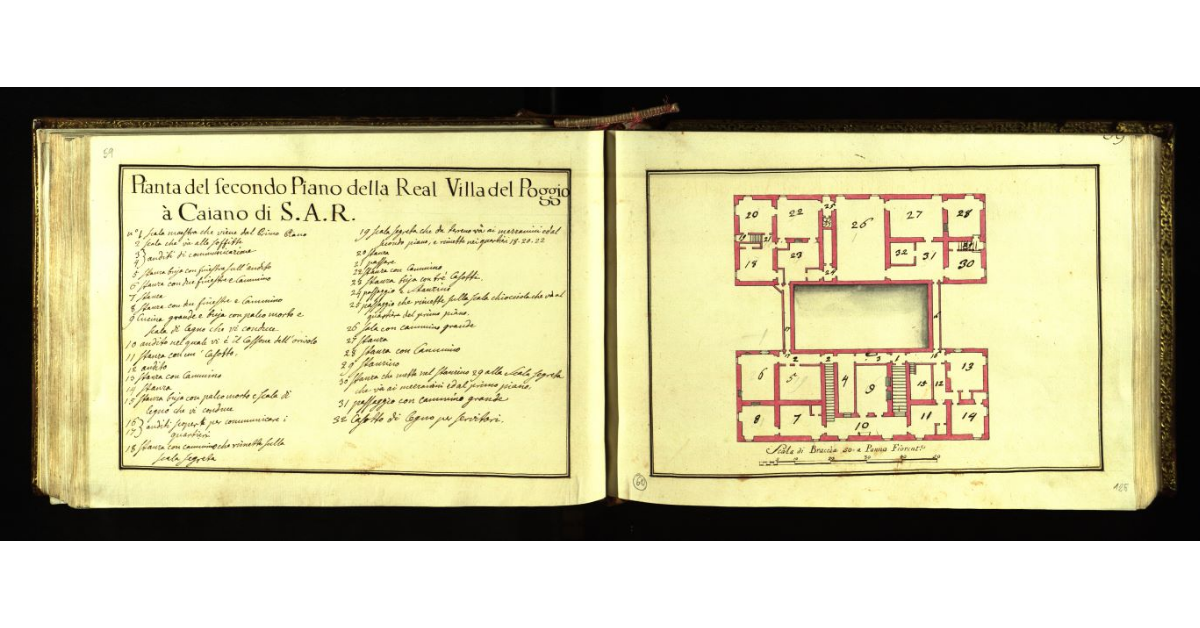 59
Pianta del secondo Piano della Real Villa del Poggio
à Caiano di S.A.R.
n.º 1 scala maestra che viene dal Primo Piano
2 scala che và alle soffitte
3
4 } anditi di comunicazione
5 stanza buja con finestra sull'andito
6 stanza con due finestre e Cammino
7 stanza
8 stanza con due finestre e Cammino
9 Cucina grande e buja con palco morto e
scala di legno che vi conduce
10 andito nel quale vi è il Cassone dell'oriolo
11 stanza con un' Casotto.
12 andito
13 stanza con Cammino
14 stanza
15 stanza buja con palco morto e scala di
legno che vi conduce
16
17 } anditi scoperti per comunicare i
quartieri
18 stanza con cammino che rimette sulla
scala segreta
19 scala segreta che da terreno và ai mezzanini ed al
secondo piano, e rimette nei quartieri 18. 20. 22
20 stanza
21 passare
22 stanza con Cammino
23 stanza buja con trè Casotti.
24 passaggio e stanzino
25 passaggio che rimette sulla scala a chiocciola che và al
quartiere del primo piano.
26 sala con cammino grande
27 stanza
28 stanza con Cammino
29 stanzino
30 stanza che mette nel stanzino 29 alla scala segreta
che và ai mezzanini ed al primo piano.
31 passaggio con cammino grande
32 Casotto di legno per servitori.
59
20 22 25 26 27 28
19 21
18 23 24 32 31 30
17 6
16
6 5 2 4 2 9 3 1 15 12 13
8 7 10 11 14
Scala di Braccia 50 a Panno Fiorent.
60
188